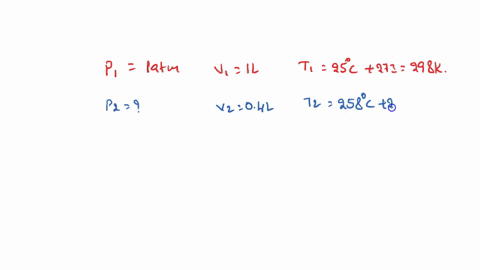 P₁ = 1atm V₁ = 1L T₁ = 25°C + 273 = 298K.
P₂ = ? V₂ = 0.4L T₂ = 258°C +2